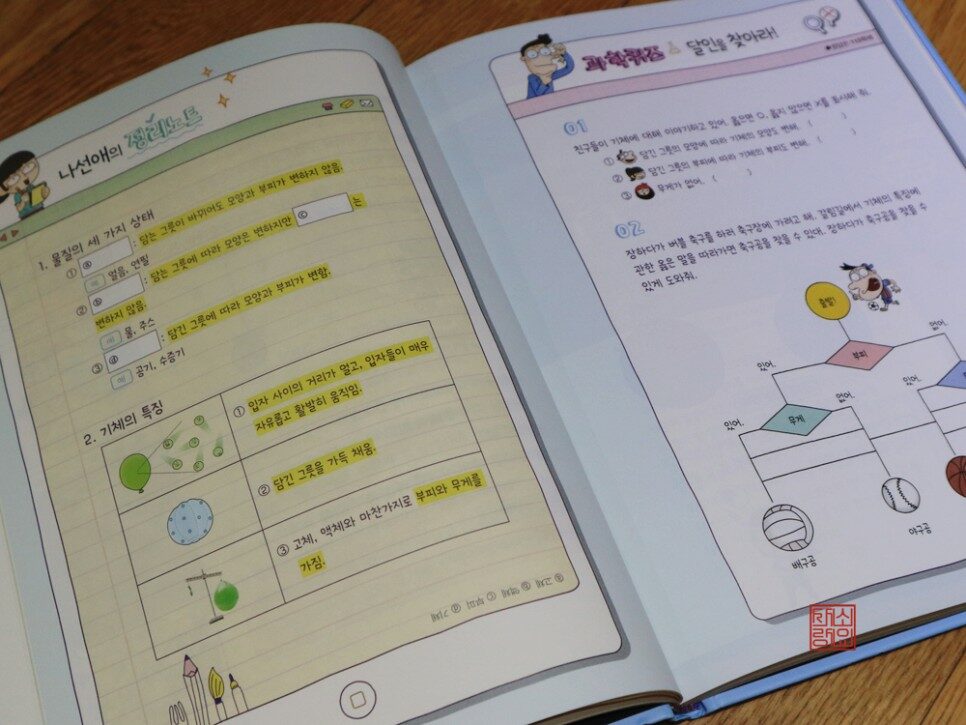 나선애의 정리노트
1. 물질의 세 가지 상태
① ⓐ : 담는 그릇이 바뀌어도 모양과 부피가 변하지 않음.
예 얼음, 연필
② ⓑ : 담는 그릇에 따라 모양은 변하지만 ⓒ 는
변하지 않음.
예 물, 주스
③ ⓓ : 담긴 그릇에 따라 모양과 부피가 변함.
예 공기, 수증기
2. 기체의 특징
① 입자 사이의 거리가 멀고, 입자들이 매우
자유롭고 활발히 움직임.
② 담긴 그릇을 가득 채움.
③ 고체, 액체와 마찬가지로 부피와 무게를
가짐.
ⓐ 고체 ⓑ 액체 ⓒ 부피 ⓓ 기체
과학퀴즈 달인을 찾아라!
01
친구들이 기체에 대해 이야기하고 있어. 옳으면 O, 옳지 않으면 X를 표시해 줘.
① 담긴 그릇의 모양에 따라 기체의 모양도 변해. ( )
② 담긴 그릇의 부피에 따라 기체의 부피도 변해. ( )
③ 무게가 없어. ( )
02
장하다가 버블 축구를 하러 축구장에 가려고 해. 갈림길에서 기체의 특징에
관한 옳은 말을 따라가면 축구공을 찾을 수 있대. 장하다가 축구공을 찾을 수
있게 도와줘.
출발!
부피
있어.
없어.
무게
있어.
없어.
있어.
배구공
야구공
사소
랑의